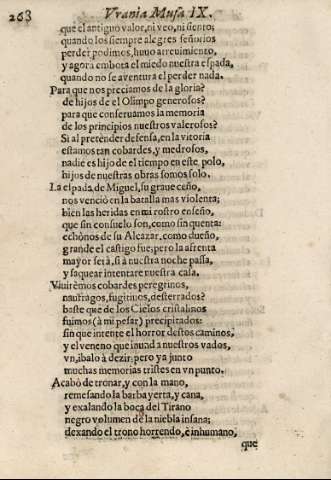 263 Vrania Musa IX.
que el antiguo valor, ni veo, ni siento;
quando los siempre alegres señorios
perder podimos, huuo atreuimiento,
y agora embota el miedo nuestra espada,
quando no se auentura el perder nada.
Para que nos preciamos de la gloria?
de hijos de el Olimpo generosos?
para que conseruamos la memoria
de los principios nuestros valerosos?
Si al pretender defensa, en la vitoria
estamos tan cobardes, y medrosos,
nadie es hijo de el tiempo en este polo,
hijos de nuestras obras somos solo.
La espada de Miguel, su graue ceño,
nos venciò en la batalla mas violenta;
bien las heridas en mi rostro enseño,
que sin consuelo son, como sin quenta:
echònos de su Alcazar, como dueño,
grande el castigo fue; pero la afrenta
mayor serà, si à nuestra noche passa,
y saquear intentare nuestra casa.
Viuirèmos cobardes peregrinos,
naufragos, fugitiuos, desterrados?
baste que de los Cielos cristalinos
fuimos (à mi pesar) precipitados:
sin que intente el horror destos caminos,
y el veneno que inunda nuestros vados,
vn, ibalo à dezir; pero ya junto
muchas memorias tristes en vn punto.
Acabò de tronar, y con la mano,
remesando la barba yerta, y cana,
y exalando la boca del Tirano
negro volumen de la niebla insana;
dexando el trono horrendo, è inhumano,
que